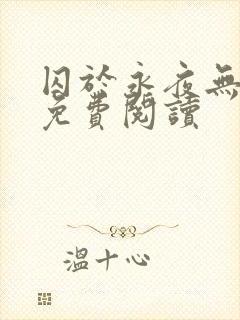 囚於永夜無
免費閱讀
溫十心